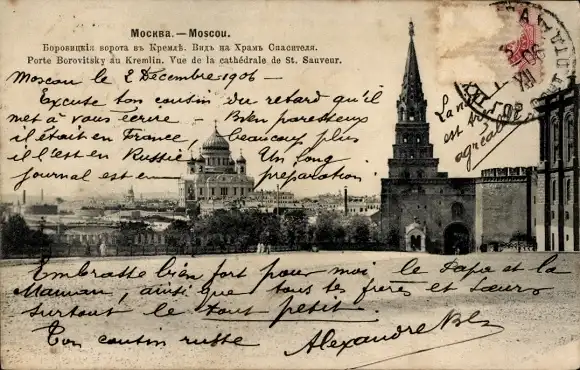 Москва. — Moscou.
Боровицкія ворота въ Кремлѣ. Видъ на Храмъ Спасителя.
Porte Borovitsky au Kremlin. Vue de la cathédrale de St. Sauveur.
Moscou le 2 Decembre 1906 -
Excuse ton cousin du retard qu'il
met à vous écrire - Bien paresseux
il était en France, beaucoup plus
il l'est en Russie. Un long
journal est en préparation
La
est
agréable
Embrasse bien fort pour moi le Papa et la
Maman, ainsi que tous tes frères et soeurs
surtout le tout petit.
Ton cousin russe
Alexandre